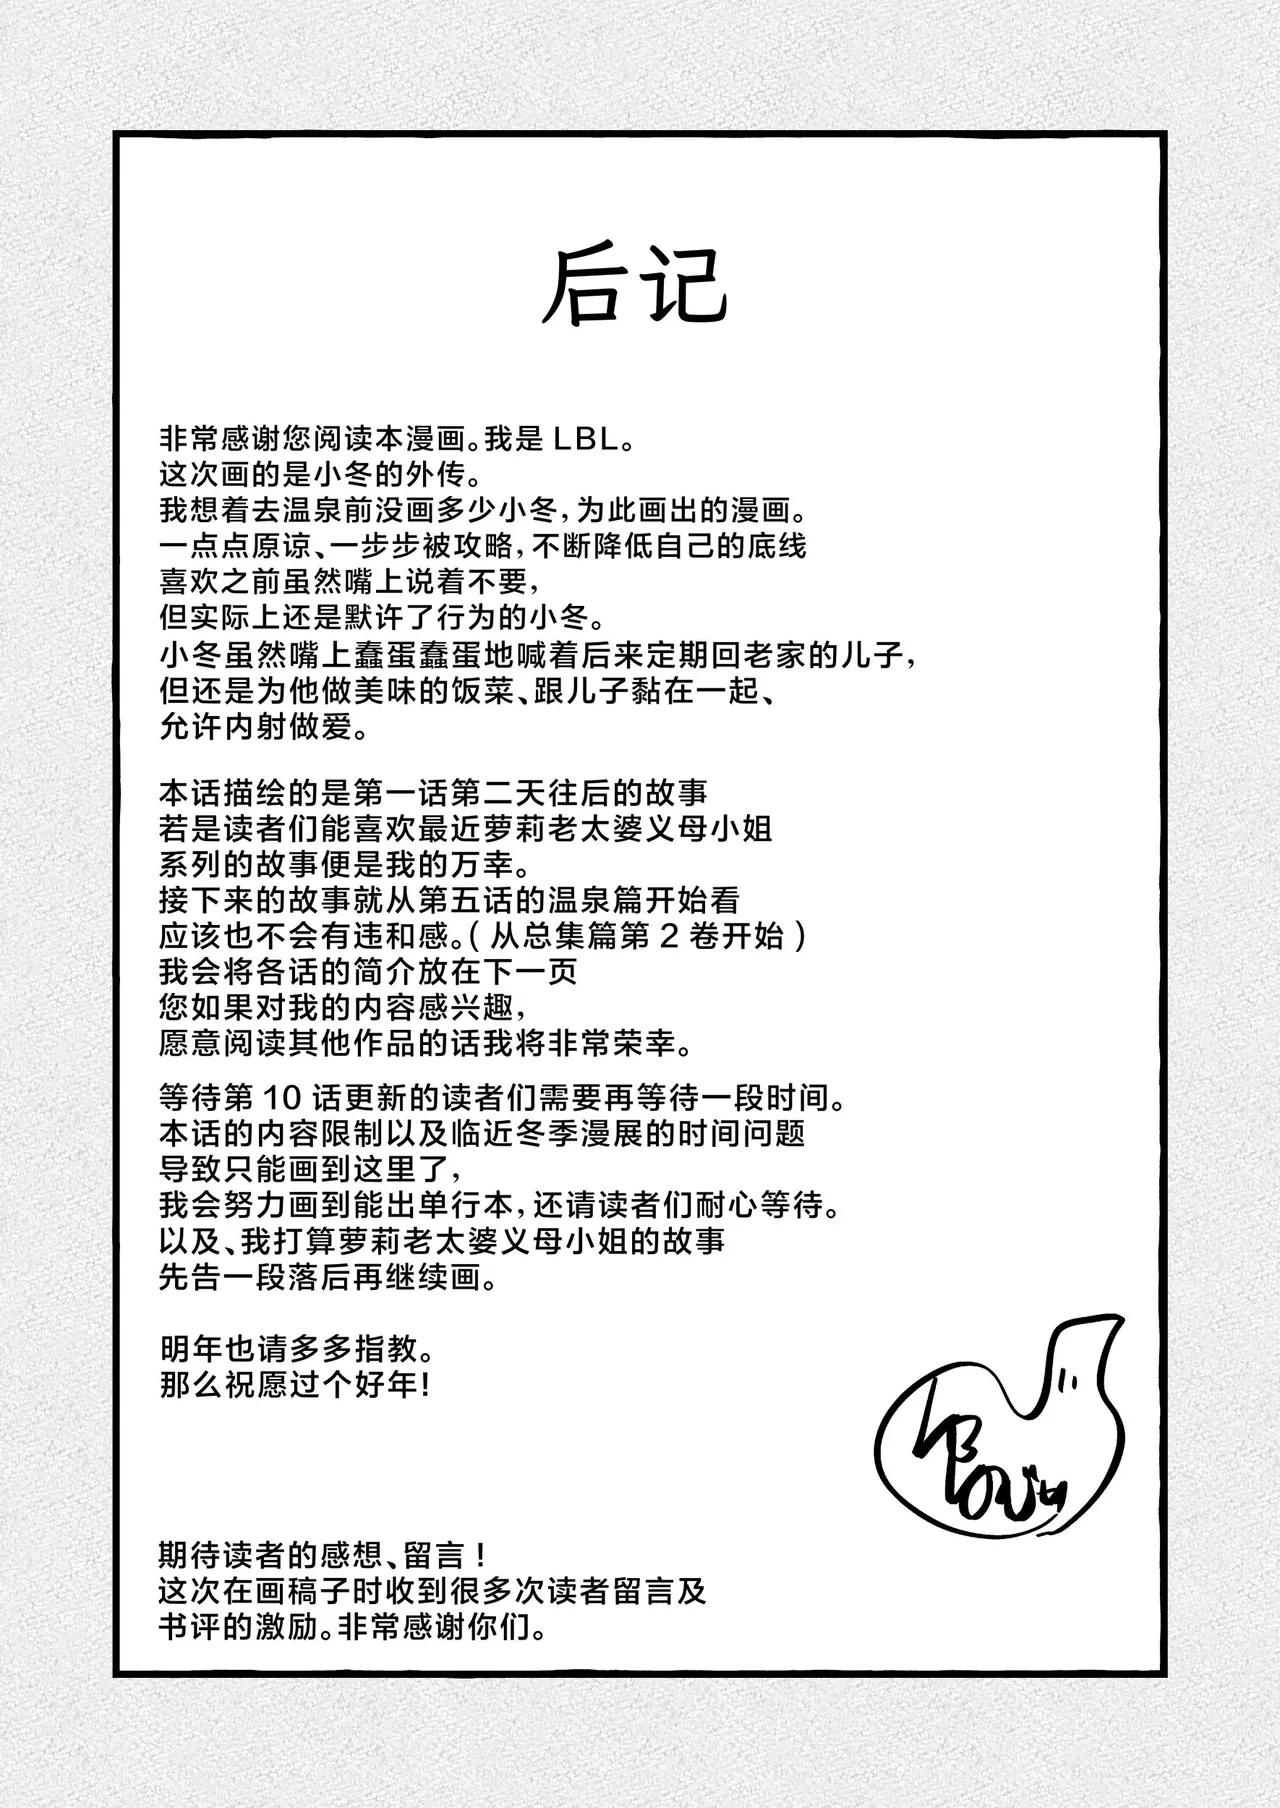 后记
非常感谢您阅读本漫画。我是 LBL。
这次画的是小冬的外传。
我想着去温泉前没画多少小冬，为此画出的漫画。
一点点原谅、一步步被攻略，不断降低自己的底线
喜欢之前虽然嘴上说着不要，
但实际上还是默许了行为的小冬。
小冬虽然嘴上蠢蛋蠢蛋地喊着后来定期回老家的儿子，
但还是为他做美味的饭菜、跟儿子黏在一起、
允许内射做爱。
本话描绘的是第一话第二天往后的故事
若是读者们能喜欢最近萝莉老太婆义母小姐
系列的故事便是我的万幸。
接下来的故事就从第五话的温泉篇开始看
应该也不会有违和感。（从总集篇第 2 卷开始）
我会将各话的简介放在下一页
您如果对我的内容感兴趣，
愿意阅读其他作品的话我将非常荣幸。
等待第 10 话更新的读者们需要再等待一段时间。
本话的内容限制以及临近冬季漫展的时间问题
导致只能画到这里了，
我会努力画到能出单行本，还请读者们耐心等待。
以及、我打算萝莉老太婆义母小姐的故事
先告一段落后再继续画。
明年也请多多指教。
那么祝愿过个好年！
期待读者的感想、留言！
这次在画稿子时收到很多次读者留言及
书评的激励。非常感谢你们。